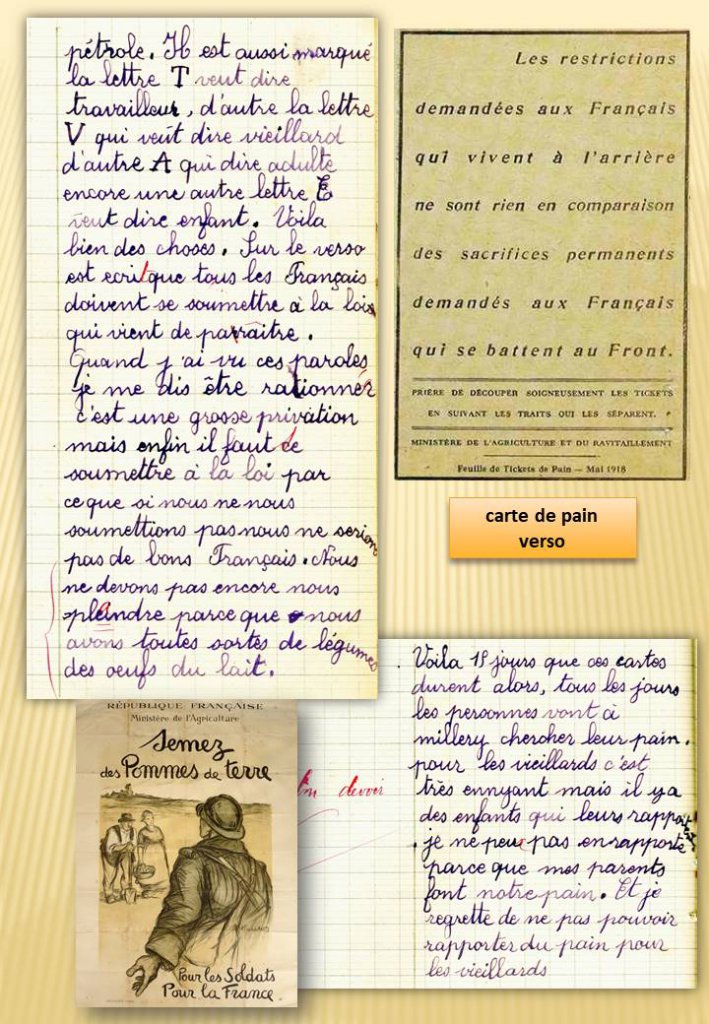 pétrole. Il est aussi marqué
la lettre T veut dire
travailleur, d'autre la lettre
V qui veut dire vieillard
d'autre A qui dire adulte
encore une autre lettre E
veut dire enfant. Voila
bien des choses. Sur le verso
est ecrit que tous les Français
doivent se soumettre à la lois
qui vient de parraitre.
Quand j'ai vu ces paroles
je me dis être rationner
c'est une grosse privation
mais enfin il faut ce
soumettre à la loi par
ce que si nous ne nous
soumettions pas nous ne serions
pas de bons Français. Nous
ne devons pas encore nous
pleindre parce que nous
avons toutes sortes de légumes
des oeufs du lait.
Les restrictions
demandées aux Français
qui vivent à l'arrière
ne sont rien en comparaison
des sacrifices permanents
demandés aux Français
qui se battent au Front.
PRIÈRE DE DÉCOUPER SOIGNEUSEMENT LES TICKETS
EN SUIVANT LES TRAITS QUI LES SÉPARENT.
MINISTÈRE DE L'AGRICULTURE ET DU RAVITAILLEMENT
Feuille de Tickets de Pain — Mai 1918
carte de pain
verso
RÉPUBLIQUE FRANÇAISE
Ministère de l'Agriculture
Semez
des Pommes de terre
Pour les Soldats
Pour la France
devoir
Voila 19 jours que ces cartes
durent alors, tous les jours
les personnes vont à
millery chercher leur pain.
pour les vieillards c'est
très ennyant mais il y a
des enfants qui leurs rapporte
je ne peu pas en rapporte
parce que mes parents
font notre pain. Et je
regrette de ne pas pouvoir
rapporter du pain pour
les vieillards